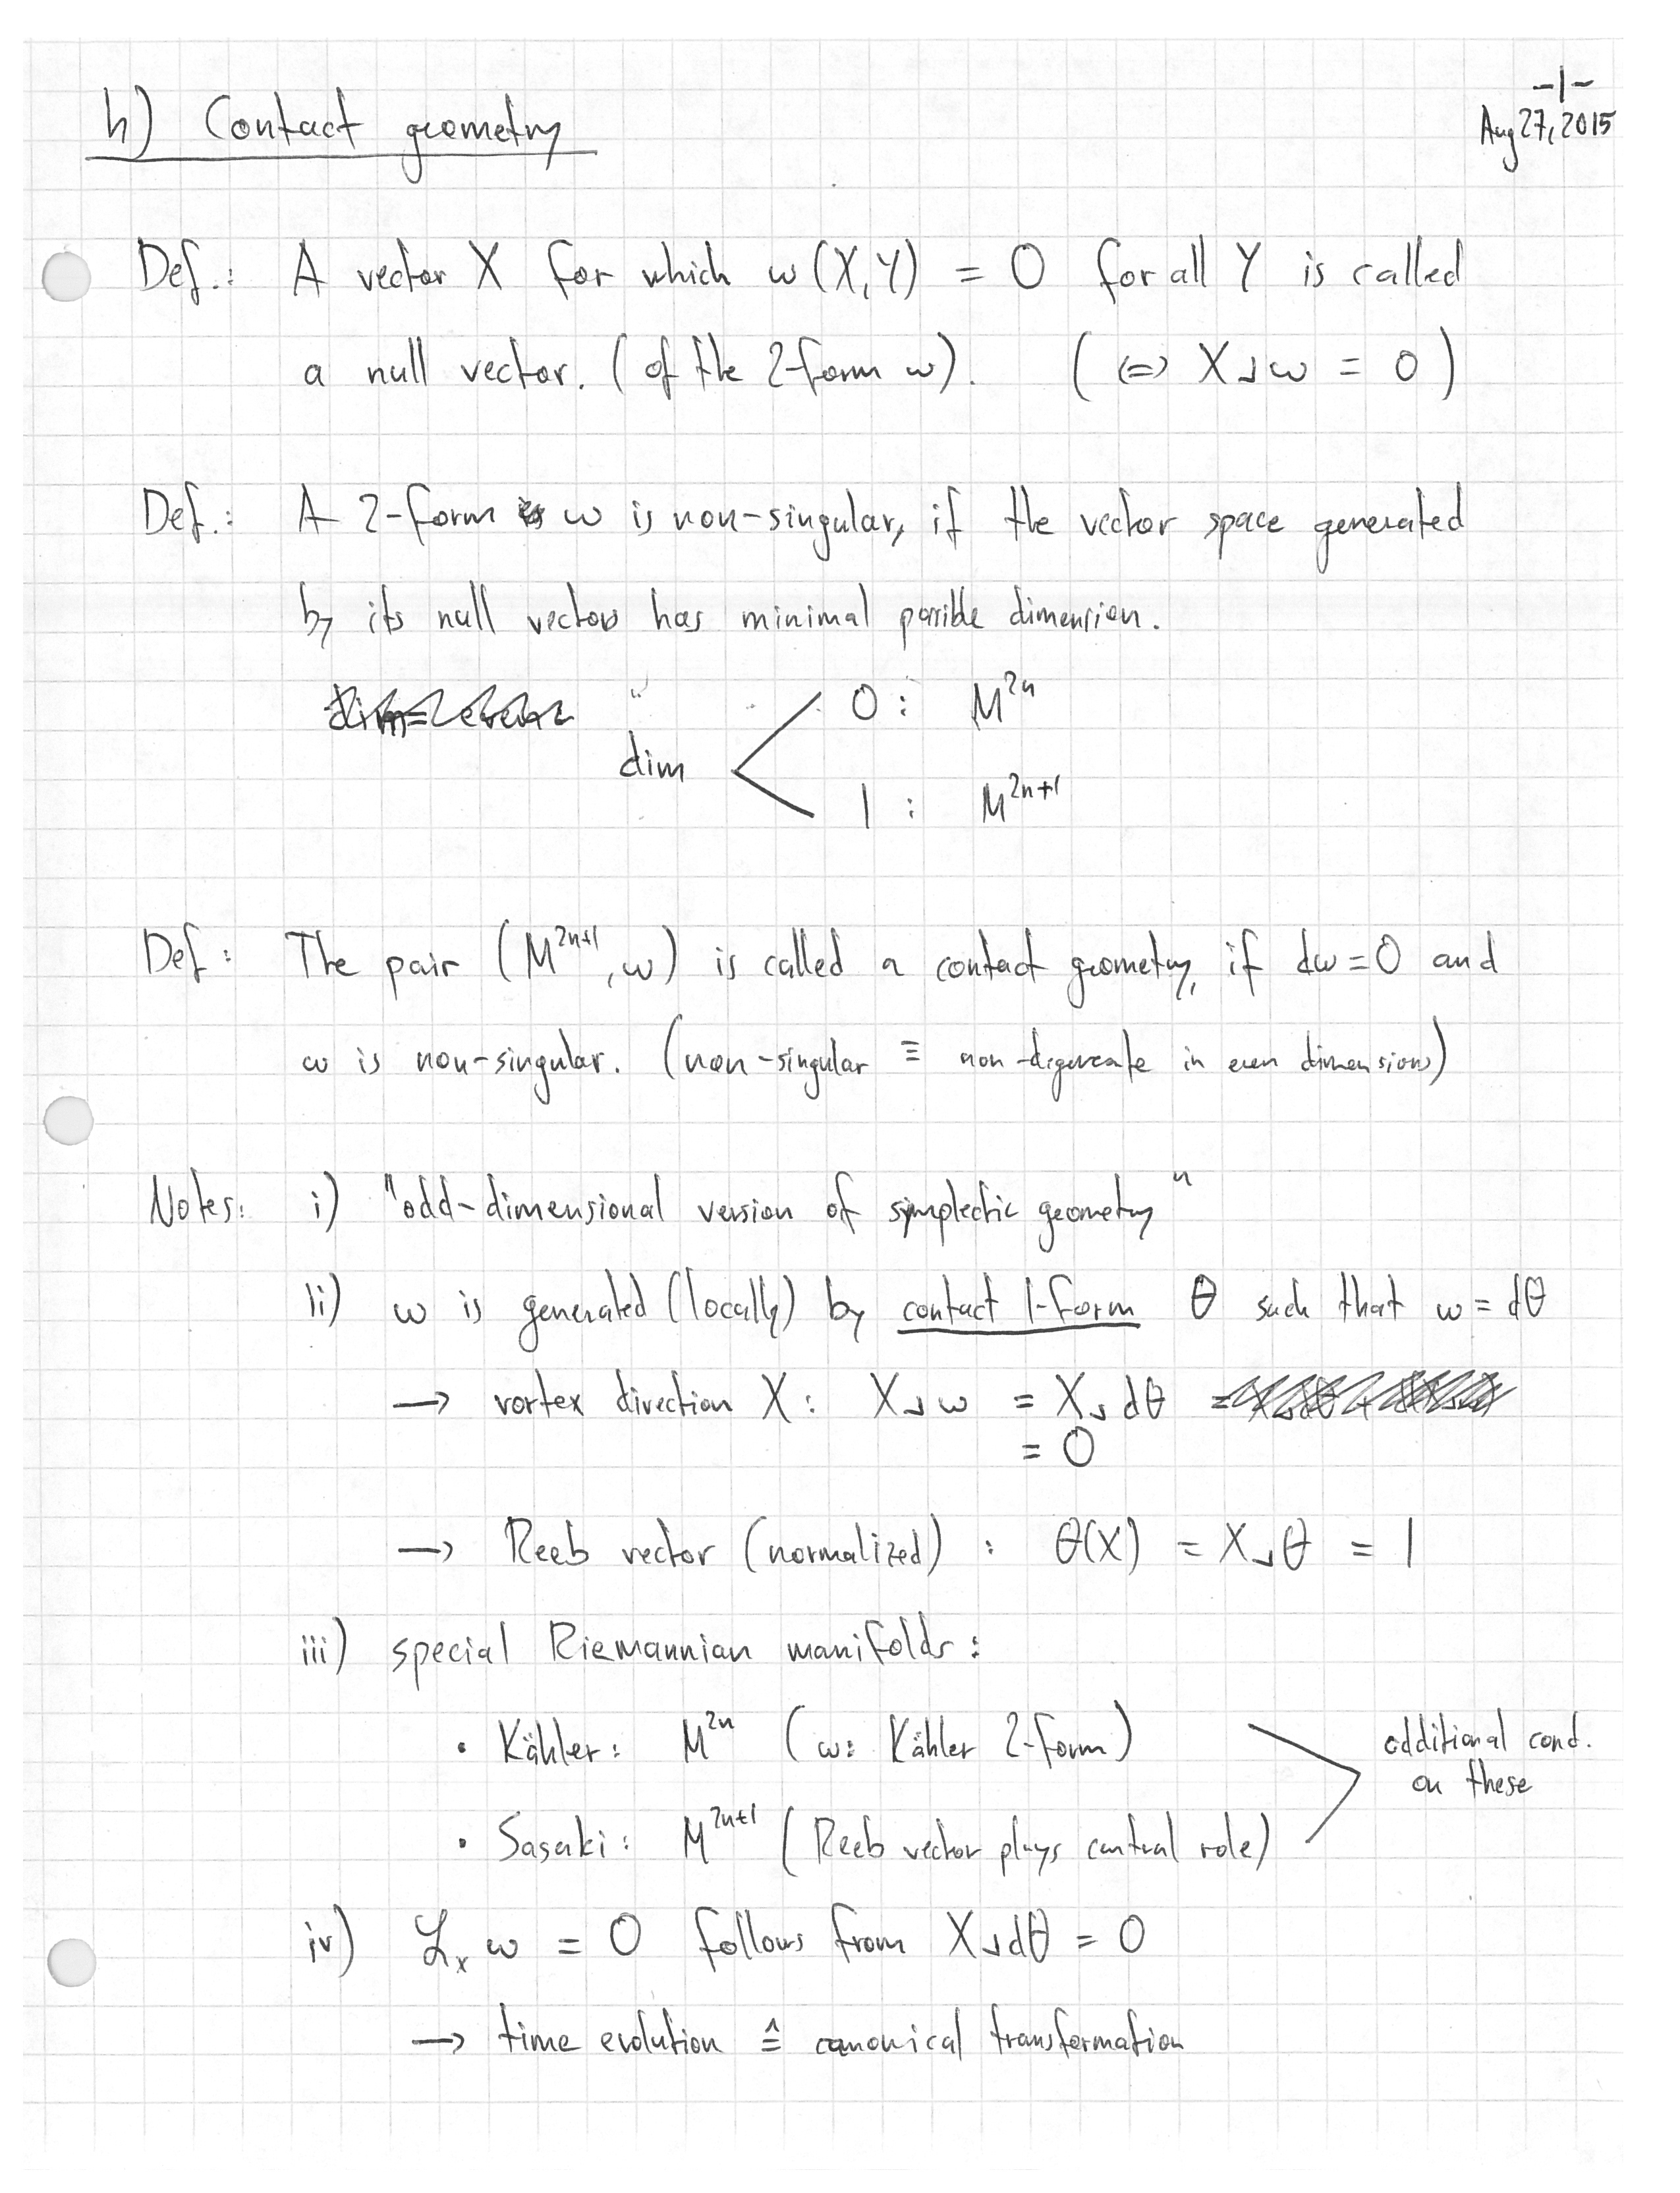 -1-
h) Contact geometry
Aug 27, 2015
Def.: A vector X for which ω(X,Y) = 0 for all Y is called
a null vector. (of the 2-form ω). (⇔ X⌟ω = 0)
Def.: A 2-form ω is non-singular, if the vector space generated
by its null vectors has minimal possible dimension.
0 : M²ⁿ
dim
1 : M²ⁿ⁺¹
Def: The pair (M²ⁿ⁺¹, ω) is called a contact geometry, if dω=0 and
ω is non-singular. (non-singular ≡ non-degenerate in even dimensions)
Notes: i) "odd-dimensional version of symplectic geometry"
ii) ω is generated (locally) by contact 1-form θ such that ω = dθ
→ vortex direction X : X⌟ω = X⌟dθ
= 0
→ Reeb vector (normalized) : θ(X) = X⌟θ = 1
iii) special Riemannian manifolds:
• Kähler: M²ⁿ (ω: Kähler 2-form)
additional cond.
on these
• Sasaki: M²ⁿ⁺¹ (Reeb vector plays central role)
iv) ℒₓ ω = 0 follows from X⌟dθ = 0
→ time evolution ≙ canonical transformation